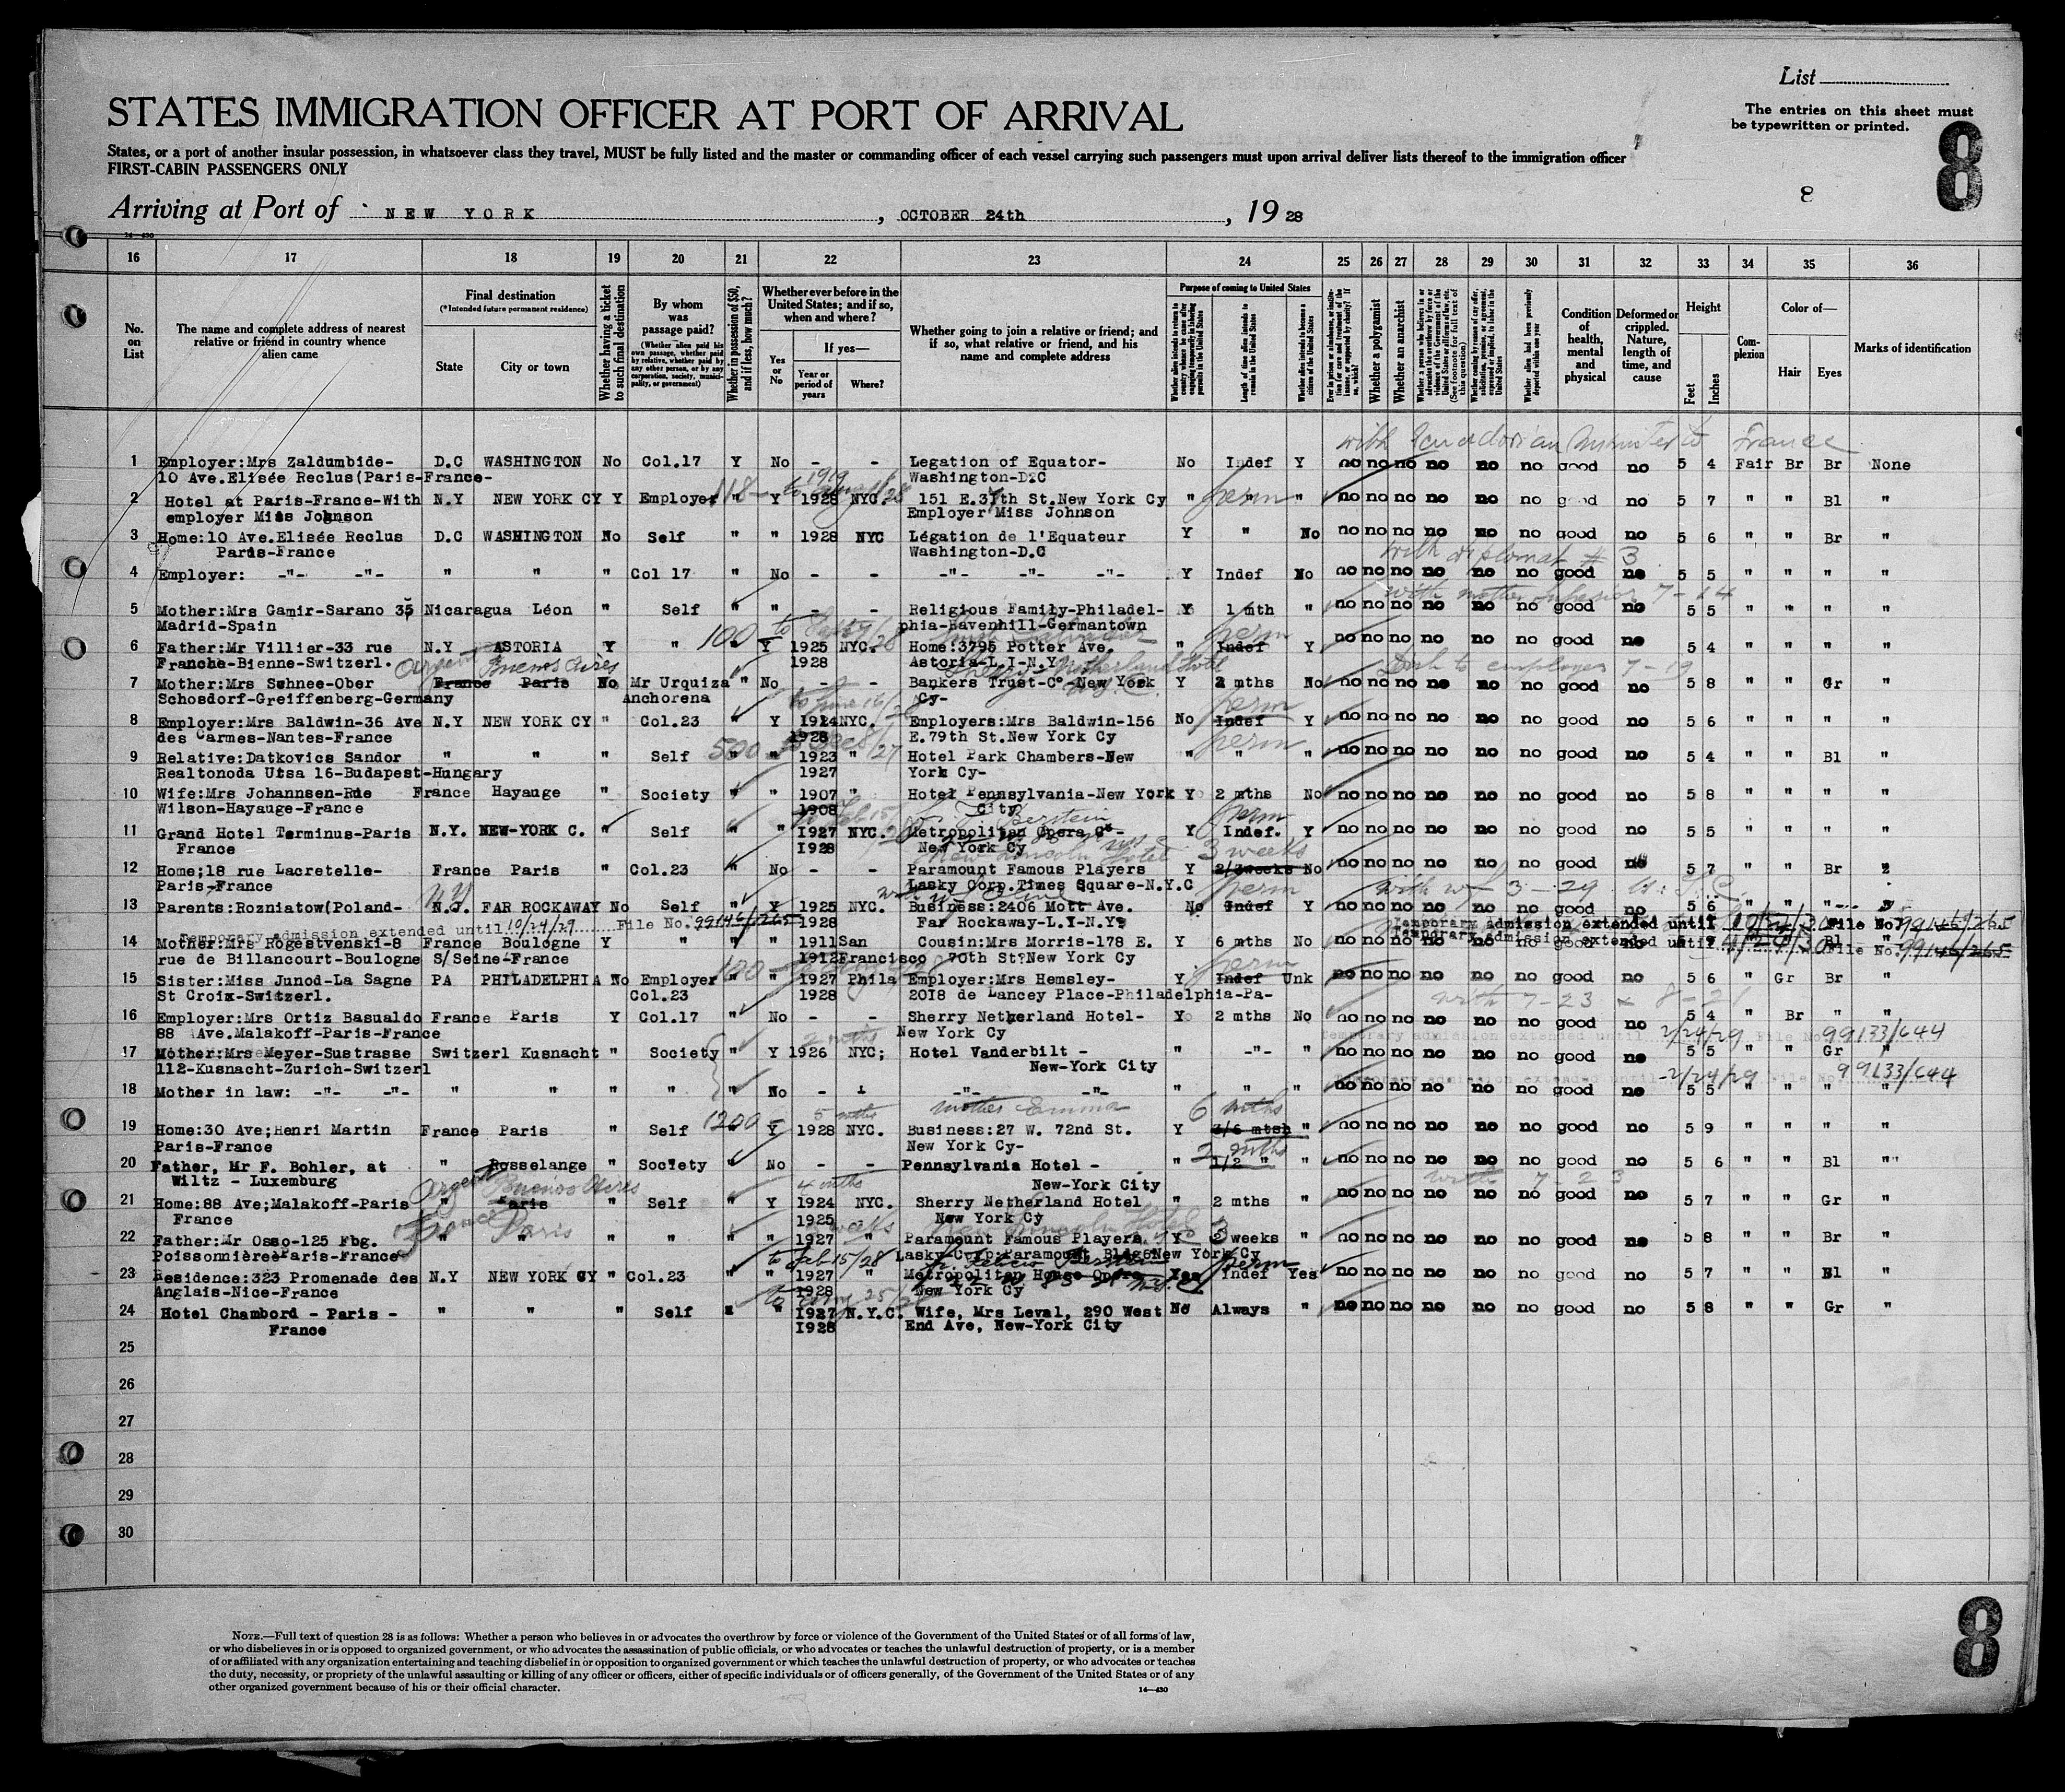 List
STATES IMMIGRATION OFFICER AT PORT OF ARRIVAL
The entries on this sheet must
be typewritten or printed.
8
States, or a port of another insular possession, in whatsoever class they travel, MUST be fully listed and the master or commanding officer of each vessel carrying such passengers must upon arrival deliver lists thereof to the immigration officer
FIRST-CABIN PASSENGERS ONLY
8
Arriving at Port of NEW YORK, OCTOBER 24th, 19 28
14—430
16 17 18 19 20 21 22 23 24 25 26 27 28 29 30 31 32 33 34 35 36
No. on List
The name and complete address of nearest relative or friend in country whence alien came
Final destination
(*Intended future permanent residence)
State
City or town
Whether having a ticket to such final destination
By whom was passage paid?
(Whether alien paid his own passage, whether paid by relative, whether paid by any other person, or by any corporation, society, municipality, or government)
Whether in possession of $50, and if less, how much?
Whether ever before in the United States; and if so, when and where?
Yes or No
If yes—
Year or period of years
Where?
Whether going to join a relative or friend; and if so, what relative or friend, and his name and complete address
Purpose of coming to United States
Length of time alien intends to remain in the United States
Whether alien intends to become a citizen of the United States
Whether a polygamist
Whether an anarchist
Condition of health, mental and physical
Deformed or crippled. Nature, length of time, and cause
Height
Feet
Inches
Complexion
Color of—
Hair
Eyes
Marks of identification
with Ecuadorian Minister to France
1 Employer:Mrs Zaldumbide- D.C WASHINGTON No Col.17 Y No - - Legation of Equator- No Indef Y no no no no no no good no 5 4 Fair Br Br None
10 Ave.Elisée Reclus(Paris-France- Washington-D?C
2 Hotel at Paris-France-With N.Y NEW YORK CY Y Employer " Y 1928 NYC. 151 E.37th St.New York Cy " perm " no no no no no no good no 5 7 " " Bl "
employer Miss Johnson Employer Miss Johnson
3 Home:10 Ave.Elisée Reclus D.C WASHINGTON No Self " " 1928 NYC Légation de l'Equateur Y " No no no no no no no good no 5 6 " " Br "
Paris-France Washington-D.C
with diplomat # 3
4 Employer: -"- -"- " " " Col 17 " No - - -"- -"- -"- Y Indef No no no no no no no good no 5 5 " " " "
with mother superior 7-14
5 Mother:Mrs Gamir-Sarano 35 Nicaragua Léon " Self " " - - Religious Family-Philadel- Y 1 mth " no no no no no no good no 5 5 " " " "
Madrid-Spain phia-Ravenhill-Germantown
6 Father:Mr Villier-33 rue N.Y ASTORIA Y " 100 Y 1925 NYC. Home:3795 Potter Ave. " perm Indef Y no no no no no no good no 5 4 " " " "
Franche-Bienne-Switzerl. 1928 Astoria-L.I-N.Y
Buenos Aires
7 Mother:Mrs Schnee-Ober France Paris No Mr Urquiza " No - - Bankers Trust-C°-New York Y 2 mths No no no no no no no good no 5 8 " " Gr "
Schosdorf-Greiffenberg-Germany Anchorena Cy-
8 Employer:Mrs Baldwin-36 Ave N.Y NEW YORK CY " Col.23 Y 1924 NYC. Employers:Mrs Baldwin-156 No perm Indef Y no no no no no no good no 5 6 " " " "
des Carmes-Nantes-France 1928 E.79th St.New York Cy
9 Relative:Datkovics Sandor " " " Self 500 " 1923 " Hotel Park Chambers-New " perm " " no no no no no no good no 5 4 " " Bl "
Realtonoda Utsa 16-Budapest-Hungary 1927 York Cy-
10 Wife:Mrs Johannsen-Rue France Hayauge " Society " " 1907 " Hotel Pennsylvania-New York Y 2 mths No no no no no no no good no 5 8 " " " "
Wilson-Hayauge-France 1908 City
11 Grand Hotel Terminus-Paris N.Y. NEW-YORK C. " Self " " 1927 NYC. Metropolitan Opera C°- Y perm Indef. Y no no no no no no good no 5 5 " " " "
France 1928 New York Cy
12 Home;18 rue Lacretelle- France Paris " Col.23 No - - Paramount Famous Players Y 3 weeks 2/3weeks No no no no no no no good no 5 7 " " Br "
Paris-France Lasky Corp.Times Square-N.Y.C
13 Parents:Rozniatow(Poland- N.J. FAR ROCKAWAY No Self " Y 1925 NYC. Business:2406 Mott Ave. No perm Indef Y no no no no no no good no 5 6 " " "
1928 Far Rockaway-L.I-N.Y
Temporary admission extended until 10/24/29 File No. 99146/265
Temporary Admission extended until File No. 99146/265
Temporary admission extended until File No. 99146/265
14 Mother:Mrs Rogestvenski-8 France Boulogne Y " " " 1911 San Cousin:Mrs Morris-178 E. Y 6 mths No no no no no no no good no Bl
rue de Billancourt-Boulogne S/Seine-France 1912 Francisco 70th St?New York Cy
15 Sister:Miss Junod-La Sagne PA PHILADELPHIA No Employer 100 " 1927 Phila Employer:Mrs Hemsley- Y perm Indef Unk no no no no no no good no 5 6 " Gr Br "
St Croix-Switzerl. Col.23 1928 2018 de Lancey Place-Philadelphia-Pa-
16 Employer:Mrs Ortiz Basualdo France Paris Y Col.17 " No - - Sherry Netherland Hotel- Y 2 mths No no no no no no no good no 5 4 " Br " "
88 Ave.Malakoff-Paris-France New York Cy
Temporary admission extended until 2/24/29 File No. 99133/644
17 Mother:Mrs Meyer-Sustrasse Switzerl Kusnacht " Society " Y 1926 NYC; Hotel Vanderbilt - " -"- " no no no no no no good no 5 5 " " Gr "
112-Kusnacht-Zurich-Switzerl New-York City
Temporary admission extended until 2/24/29 File No. 99133/644
18 Mother in law: -"- -"- " " " " " No - - -"- -"- " " " no no no no no no good no 5 5 " " " "
mother Emma 6 mths
19 Home:30 Ave;Henri Martin France Paris " Self 1200 Y 1928 NYC. Business:27 W. 72nd St. Y 3/6 mtsh " no no no no no no good no 5 9 " " " "
Paris-France New York Cy-
20 Father, Mr F. Bohler, at " Rosselange " Society No - - Pennsylvania Hotel - " 2 mths 1/2 " " no no no no no no good no 5 6 " " Bl "
Wiltz - Luxemburg New-York City
Buenos Aires 4 mths with 7-23
21 Home:88 Ave;Malakoff-Paris " Paris " Self " Y 1924 NYC. Sherry Netherland Hotel " 2 mths " no no no no no no good no 5 7 " " Gr "
France 1925 New York Cy
France Paris
22 Father:Mr Osso-125 Fbg. " " " " " " 1927 " Paramount Famous Players Y 3 weeks " no no no no no no good no 5 8 " " Br "
Poissonnière Paris-France Lasky Corp:Paramount Bldg New York Cy
to Feb 15/28
23 Residence:323 Promenade des N.Y NEW YORK CY " Col.23 " " 1927 " Metropolitan House Opera Yes perm Indef Yes no no no no no no good no 5 7 " " Bl "
Anglais-Nice-France 1928 New York Cy
24 Hotel Chambord - Paris - " " " Self " " 1927 N.Y.C. Wife, Mrs Leval, 290 West No Always " no no no no no no good no 5 8 " " Gr "
France 1928 End Ave, New-York City
25
26
27
28
29
30
NOTE.—Full text of question 28 is as follows: Whether a person who believes in or advocates the overthrow by force or violence of the Government of the United States or of all forms of law,
or who disbelieves in or is opposed to organized government, or who advocates the assassination of public officials, or who advocates or teaches the unlawful destruction of property, or is a member
of or affiliated with any organization entertaining and teaching disbelief in or opposition to organized government or which teaches the unlawful destruction of property, or who advocates or teaches
the duty, necessity, or propriety of the unlawful assaulting or killing of any officer or officers, either of specific individuals or of officers generally, of the Government of the United States or of any
other organized government because of his or their official character.
14—430
8